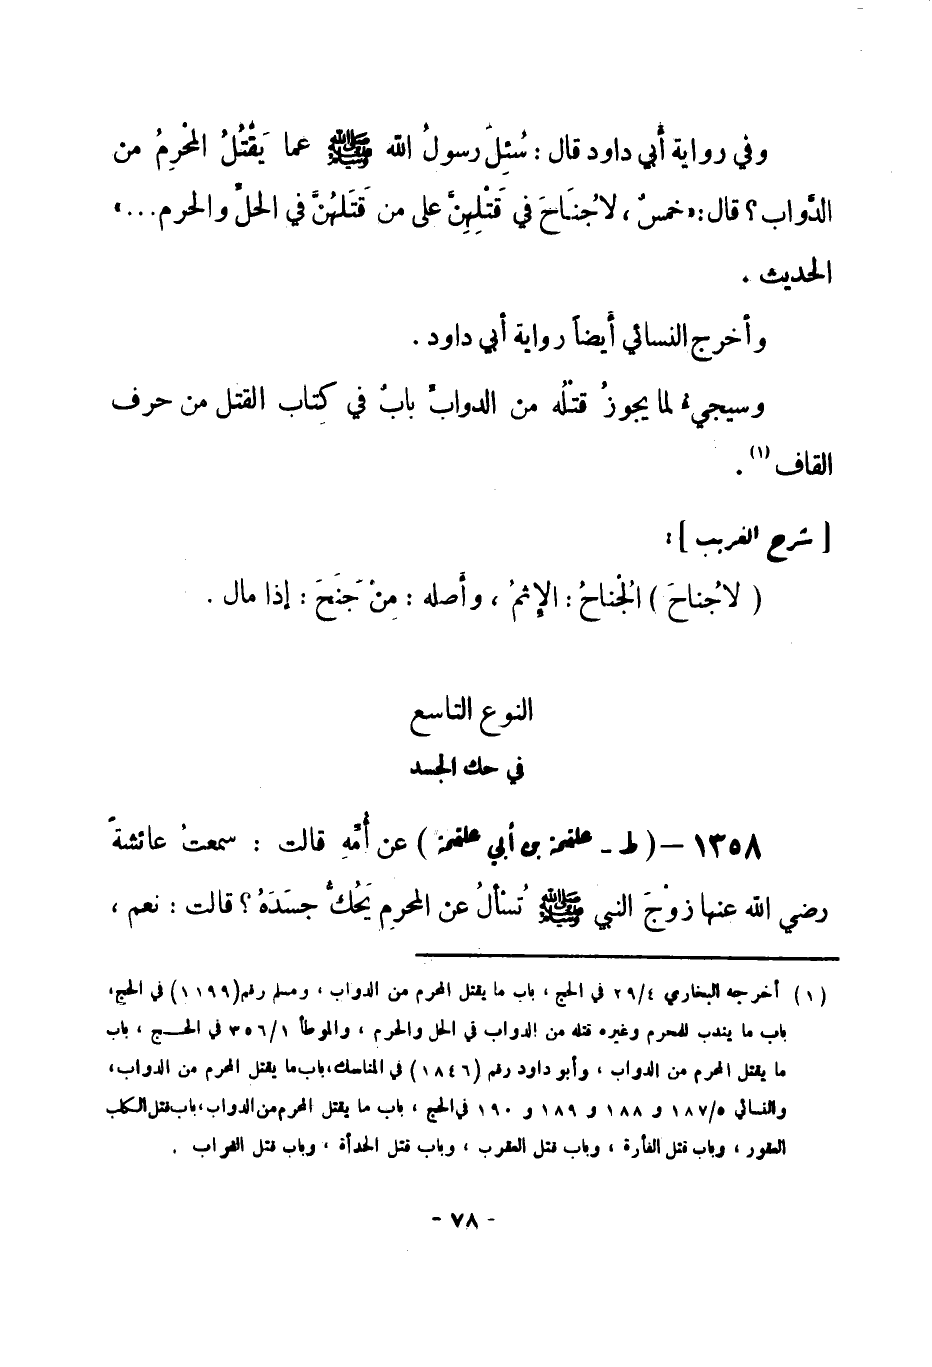 وفي رواية أَبي داود قال : سُئِلَ رسولُ الله ﷺ عما يَقْتُلُ المُحْرِمُ من
الدَّواب ؟ قال : «خمسٌ ، لا جُنَاحَ في قَتْلِهِنَّ على من قَتَلَهُنَّ في الحلِّ والحرم ...»
الحديث .
وأخرج النسائي أَيضاً رواية أبي داود .
وسيجيءُ لما يجوزُ قتْلُه من الدوابِّ بابٌ في كِتاب القتل من حرف
القاف (١) .
[ شرح الغريب ] :
( لا جُناحَ ) الجُناحُ : الإِثمُ ، وأَصله : مِنْ جَنَحَ : إذا مال .
النوع التاسع
في حك الجسد
١٣٥٨ – ( ط ـ علقمة بن أبي علقمة ) عن أُمِّهِ قالت : سمعتُ عائشةَ
رضي الله عنها زوْجَ النبي ﷺ تُسْأَلُ عن المحرمِ يَحُكُّ جسَدَهُ ؟ قالت : نعم ،
(١) أخرجه البخاري ٢٩/٤ في الحج ، باب ما يقتل المحرم من الدواب ، ومسلم رقم (١١٩٩) في الحج،
باب ما يندب للمحرم وغيره قتله من الدواب في الحل والحرم ، والموطأ ٣٥٦/١ في الحــج ، باب
ما يقتل المحرم من الدواب ، وأبو داود رقم (١٨٤٦) في المناسك، باب ما يقتل المحرم من الدواب،
والنسائي ١٨٧/٥ و ١٨٨ و ١٨٩ و ١٩٠ في الحج ، باب ما يقتل المحرم من الدواب، باب قتل الكلب
العقور ، وباب قتل الفأرة ، وباب قتل العقرب ، وباب قتل الحدأة ، وباب قتل الغراب .
- ٧٨ -